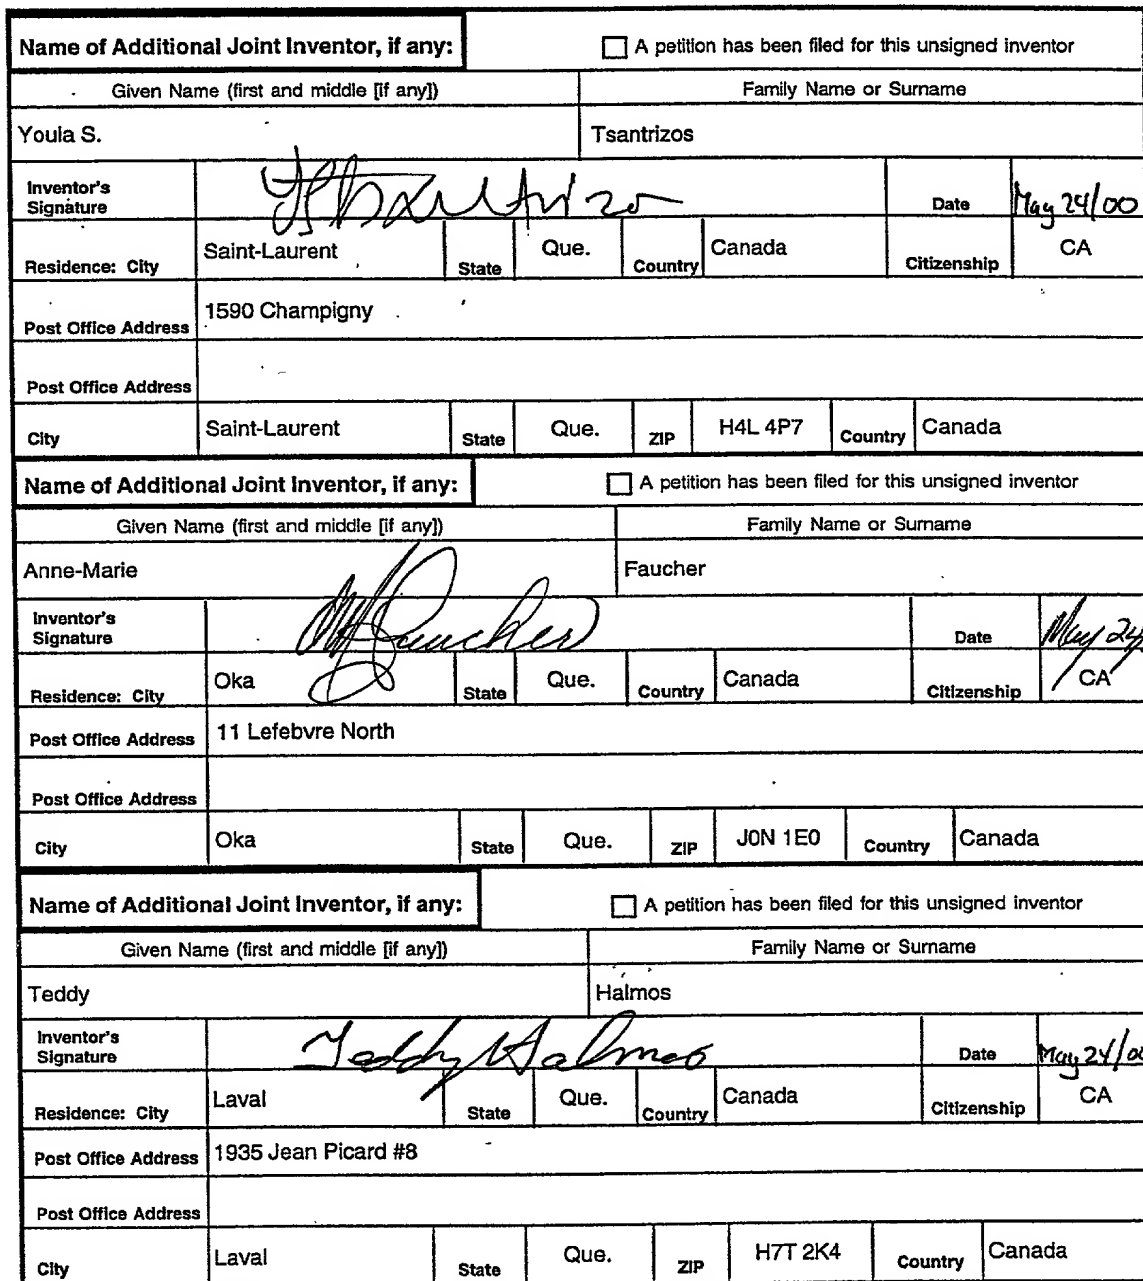 Name of Additional Joint Inventor, if any: A petition has been filed for this unsigned inventor
Given Name (first and middle [if any]) Family Name or Surname
Youla S. Tsantrizos
Inventor's Signature YSTsantrizo Date May 24/00
Residence: City Saint-Laurent State Que. Country Canada Citizenship CA
Post Office Address 1590 Champigny
Post Office Address
City Saint-Laurent State Que. ZIP H4L 4P7 Country Canada
Name of Additional Joint Inventor, if any: A petition has been filed for this unsigned inventor
Given Name (first and middle [if any]) Family Name or Surname
Anne-Marie Faucher
Inventor's Signature AMFaucher Date May 24/
Residence: City Oka State Que. Country Canada Citizenship CA
Post Office Address 11 Lefebvre North
Post Office Address
City Oka State Que. ZIP J0N 1E0 Country Canada
Name of Additional Joint Inventor, if any: A petition has been filed for this unsigned inventor
Given Name (first and middle [if any]) Family Name or Surname
Teddy Halmos
Inventor's Signature Teddy Halmos Date May 24/00
Residence: City Laval State Que. Country Canada Citizenship CA
Post Office Address 1935 Jean Picard #8
Post Office Address
City Laval State Que. ZIP H7T 2K4 Country Canada